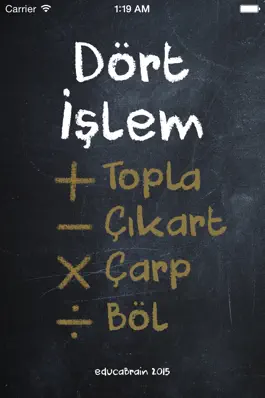 Carrier 1:19 AM
Dört
İşlem
+ Topla
− Çıkart
× Çarp
÷ Böl
educabrain 2015